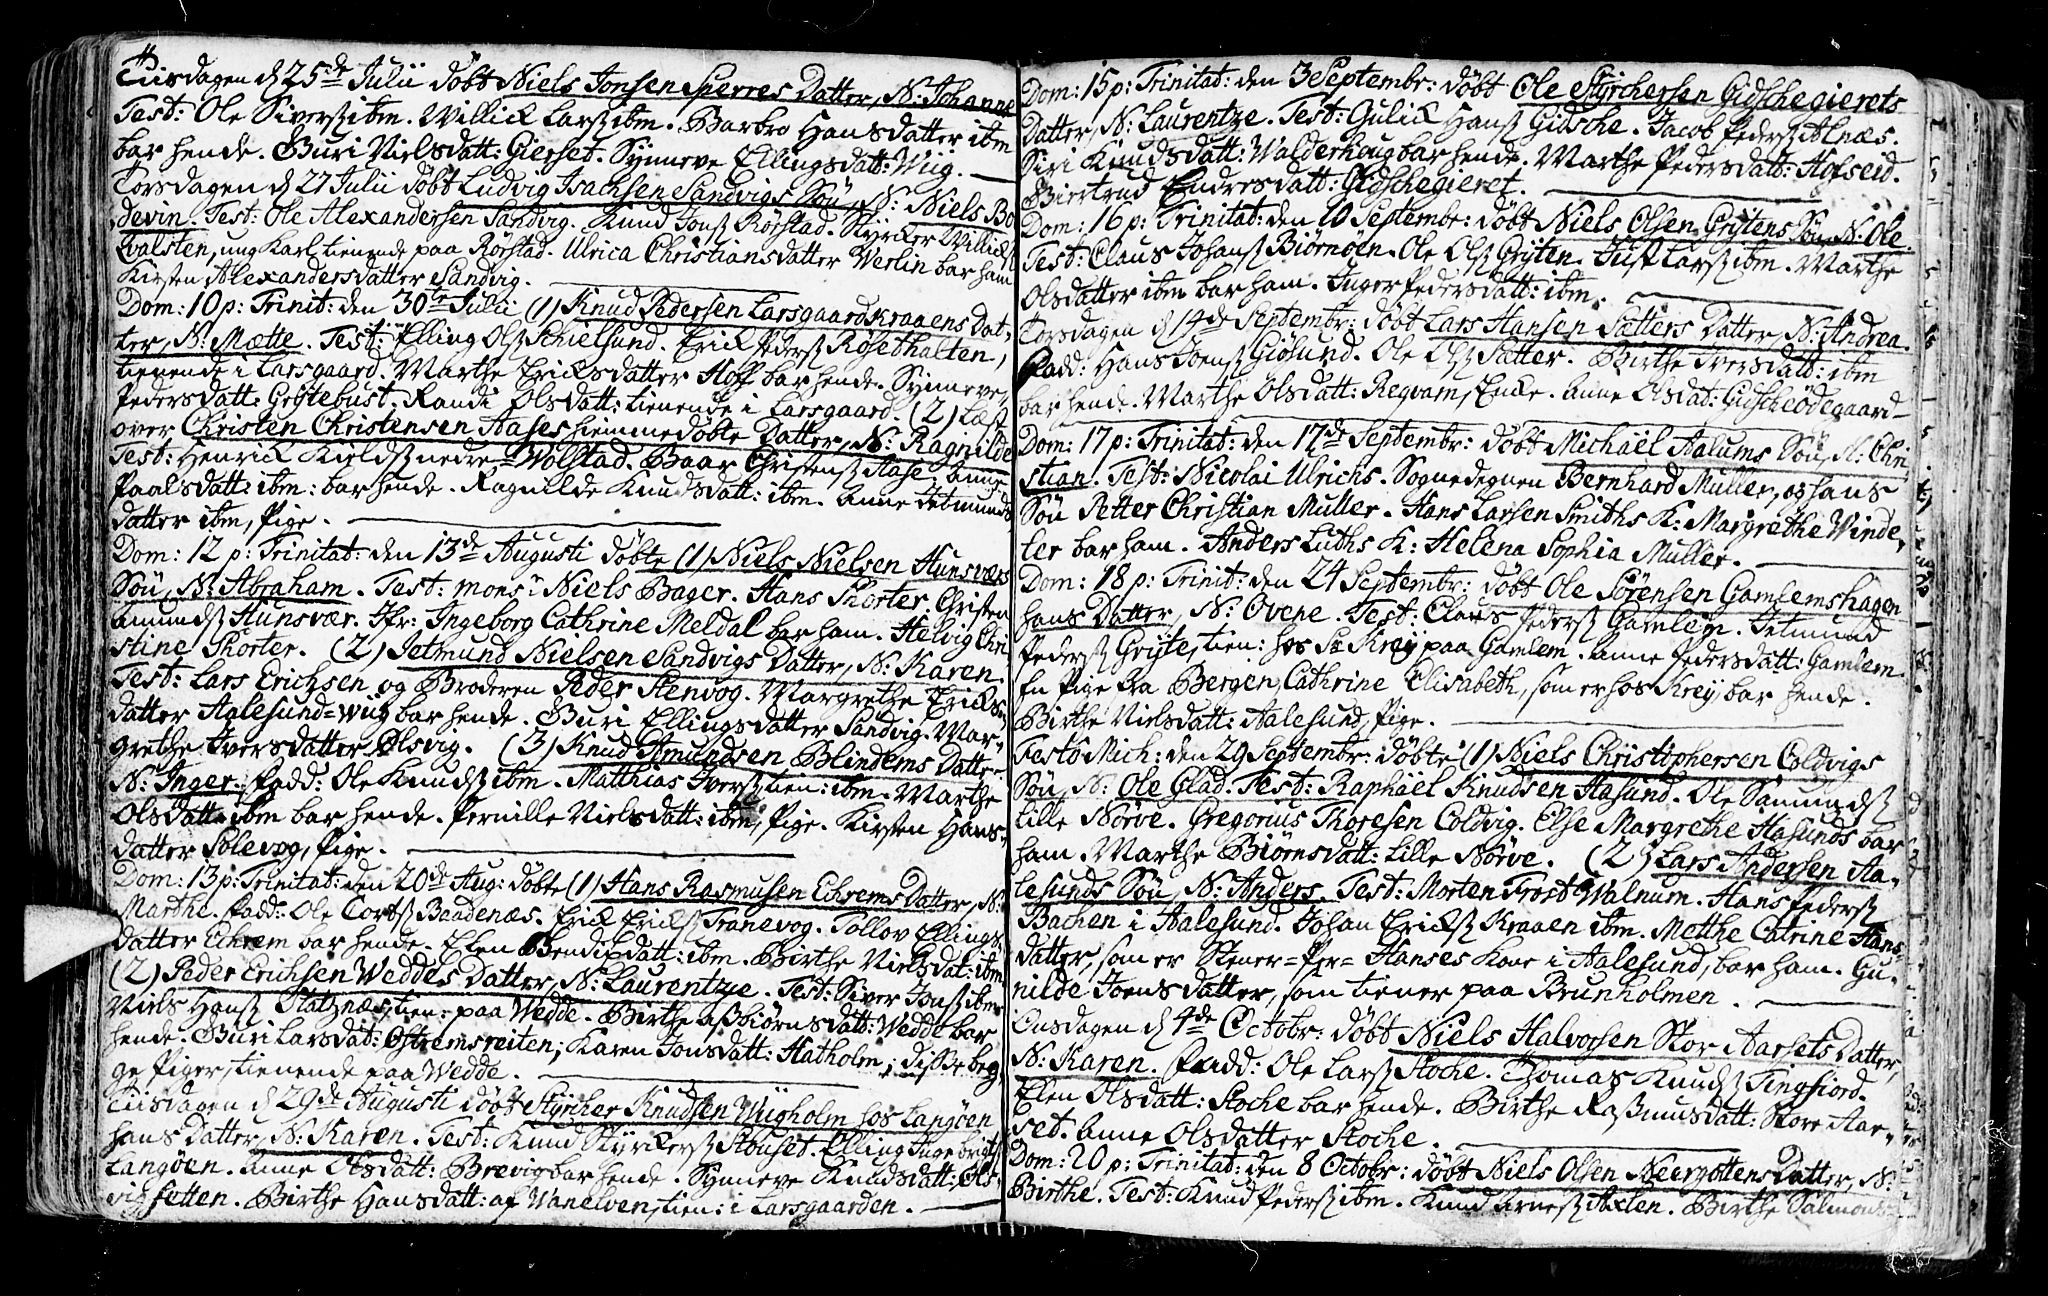 Tiirsdagen d 25de Julii døbt Niels Jonsen Sperres Datter, N: Johanne
Test: Ole Siverss ibm. Willich Larss ibm. Barbro Hansdatter ibm
bar hende. Buri Nielsdatt: Gierset. Synneve Ellingsdatt: Wiig.
Torsdagen d 27 Julii døbt Ludvig Isachsen Sandvigs Søn, N: Niels Bo
devin. Test: Ole Alexandersen Sandvig. Knud Jonss Rørstad. Styrker Willichss
Qvalsten, ung Karl tienende paa Rørstad. Ulrica Christiansdatter Werlin bar ham
Kirsten Alexandersdatter Sandvig.
Dom: 10 p: Trinit: den 30te Julii (1) Knud Pedersen Larsgaardskraaens Dat-
ter, N: Mætte. Test: Elling Olss Schielsund. Erick Pederss Røsethalten,
tienende i Larsgaard. Marthe Ericksdatter Hoff bar hende. Synneve
Pedersdatt: Grytebust. Randi Olsdatt: tienende i Larsgaard. (2) Læst
over Christen Christensen Aases hiemmedøbte Datter, N: Ragnilde
Test: Henrick Kieldss nedre-Wolstad. Baar Christenss Aase, Anne
Paalsdatt: ibm: bar hende. Ragnilde Knudsdatt: ibm. Anne Jetmunds
datter ibm, Pige.
Dom: 12 p: Trinitat: den 13de Augusti døbte (1) Niels Nielsen Hunsværs
Søn, N: Abraham. Test: monsr Niels Bager. Hans Thorter. Christen
Amundss Hunsvær. Jfr: Ingeborg Cathrine Meldal bar ham. Helvig Chri
stine Thorter. (2) Jetmund Nielsen Sandvigs Datter, N: Karen.
Test: Lars Erichsen og Broderen Peder Stenvog. Margrethe Ericks-
datter Aalesund-wiig bar hende. Buri Ellingsdatter Sandvig. Mar-
grethe Iversdatter Olsvig. (3) Knud Amundsen Blindems Datter
N: Inger. Fadd: Ole Knudss ibm. Matthias Iverss tien: ibm. Marthe
Olsdatt: ibm bar hende. Pernille Nielsdatt: ibm, Pige. Kirsten Hans-
datter Solevog, Pige.
Dom: 13 p: Trinitat: den 20de Aug: døbte (1) Hans Rasmusen Eckrems Datter, N:
Marthe. Fadd: Ole Cortss Baadenæs. Erick Erickss Tranevog. Tollov Ellings-
datter Eckrem bar hende. Elen Bendixdatt: ibm. Birthe Nielsdat: ibm
(2) Peder Erichsen Weddes Datter, N: Laurentze. Test: Siver Jonss ibm.
Niels Hanss Flatznæs, tien: paa Wedde. Birthe Assbiørnsdatt: Wedde bar
hende. Buri Larsdat: Østremsreiten; Karen Jonsdatt: Hatholm; disse beg-
ge Piger, tienende paa Wedde.
Tiisdagen d 29de Augusti døbt Styrcher Knudsen Wiigholm hos Langøen
hans Datter, N: Karen. Test: Knud Styrkerss Stouset. Elling Ingebrigtss
Langøen. Anne Olsdatt: Brevig bar hende. Synneve Knudsdatt: Ols-
vigsetten. Birthe Hansdatt: af Wanelven, tien: i Larsgaarden.
Dom: 15 p: Trinitat: den 3 Septembr: døbt Ole Styrchersen Gidschegierets
Datter, N: Laurentze. Test: Gulick Hanss Gidsche. Jacob Pederss Alnæs.
Siri Knudsdatt: Walderhoug bar hende. Marthe Pedersdatt: Hofseid.
Giertrud Endresdatt: Gidschegieret.
Dom: 16 p: Trinitat: den 10 Septembr: døbt Niels Olsen Grytens Søn, N: Ole.
Test: Claus Johanss Biørnøen. Ole Olss Gryten. Just Larss ibm. Marthe
Olsdatter ibm bar ham. Inger Pedersdatt: ibm.
Torsdagen d 14de Septembr: døbt Lars Hansen Sætters Datter, N: Andrea.
Fadd: Hans Joenss Giøsund. Ole Olss Sætter. Birthe Iversdatt: ibm
bar hende. Marthe Olsdatt: Reqvam, Enke. Anne Olsdat: Gidscheødegaard
Dom: 17 p: Trinitat: den 17de Septembr: døbt Michaël Aalums Søn, N: Chri
stian. Test: Nicolai Ulrichs. Sognedegnen Bernhard Muller, og hans
Søn Petter Christian Muller. Hans Larsen Smiths K: Margrethe Winde-
ler bar ham. Anders Luths K: Helena Sophia Muller.
Dom: 18 p: Trinit: den 24 Septembr: døbt Ole Sørensen Gamlemshagen
hans Datter, N: Ovene. Test: Claus Pederss Gamlem. Jetmund
Pederss Gryte, tien: hos Sr Krey paa Gamlem. Anne Pedersdatt: Gamlem.
En Pige fra Bergen, Cathrine Elisabeth, som er hos Krey, bar hende.
Birthe Nielsdatt: Aalesund, Pige.
Festo Mich: den 29 Septembr: døbte (1) Niels Christophersen Coldvigs
Søn, N: Ole Glad. Test: Raphaël Knudsen Hasund. Ole Samundss
lille Nørve. Gregorius Thoresen Coldvig. Else Margrethe Hasunds bar
ham. Marthe Biørnsdatt: lille Nørve. (2) Lars Andersen Aa-
lesunds Søn, N: Anders. Test: Morten Frost Walnum. Hans Pederss
Bachen i Aalesund. Johan Erickss Kraaen ibm. Metthe Catrine Hans-
datter, som er Stener-Per-Hanses Kone i Aalesund, bar ham. Gu-
nilde Joensdatter, som tiener paa Brunholmen.
Onsdagen d 4de Octobr: døbt Niels Halvorsen Stor Aarsets Datter,
N: Karen. Fadd: Ole Larss Stoche. Thomas Knudss Tingfiord.
Elen Olsdatt: Stoche bar hende. Birthe Rassmusdatt: Store Aar-
set. Anne Olsdatter Stoche.
Dom: 20 p: Trinitat: den 8 Octobr: døbt Niels Olsen Neergottens Datter, N:
Birthe. Test: Knud Pederss ibm. Knud Arness Axlen. Birthe Salmons-